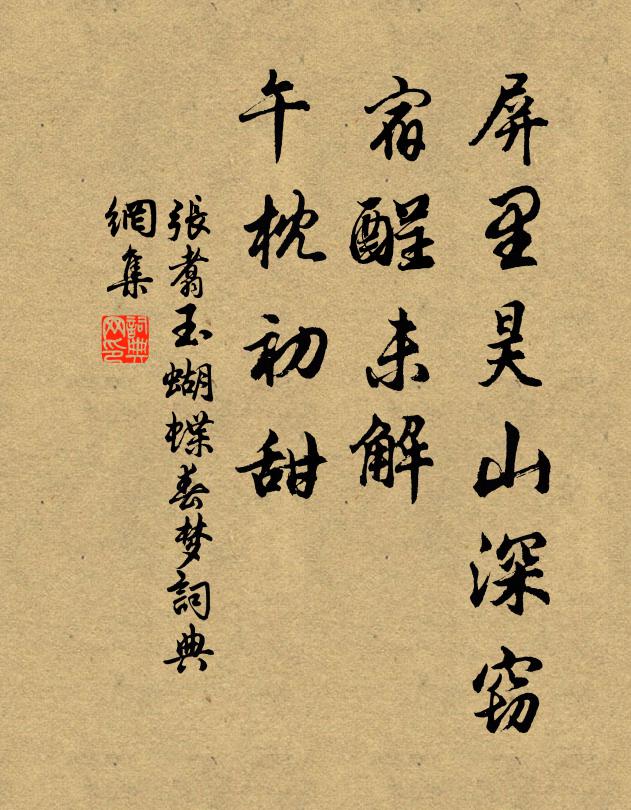 屏里吴山深窈
宿醒未解
午枕初甜
張翥玉蝴蝶春梦詞典
網集
詞典
网印